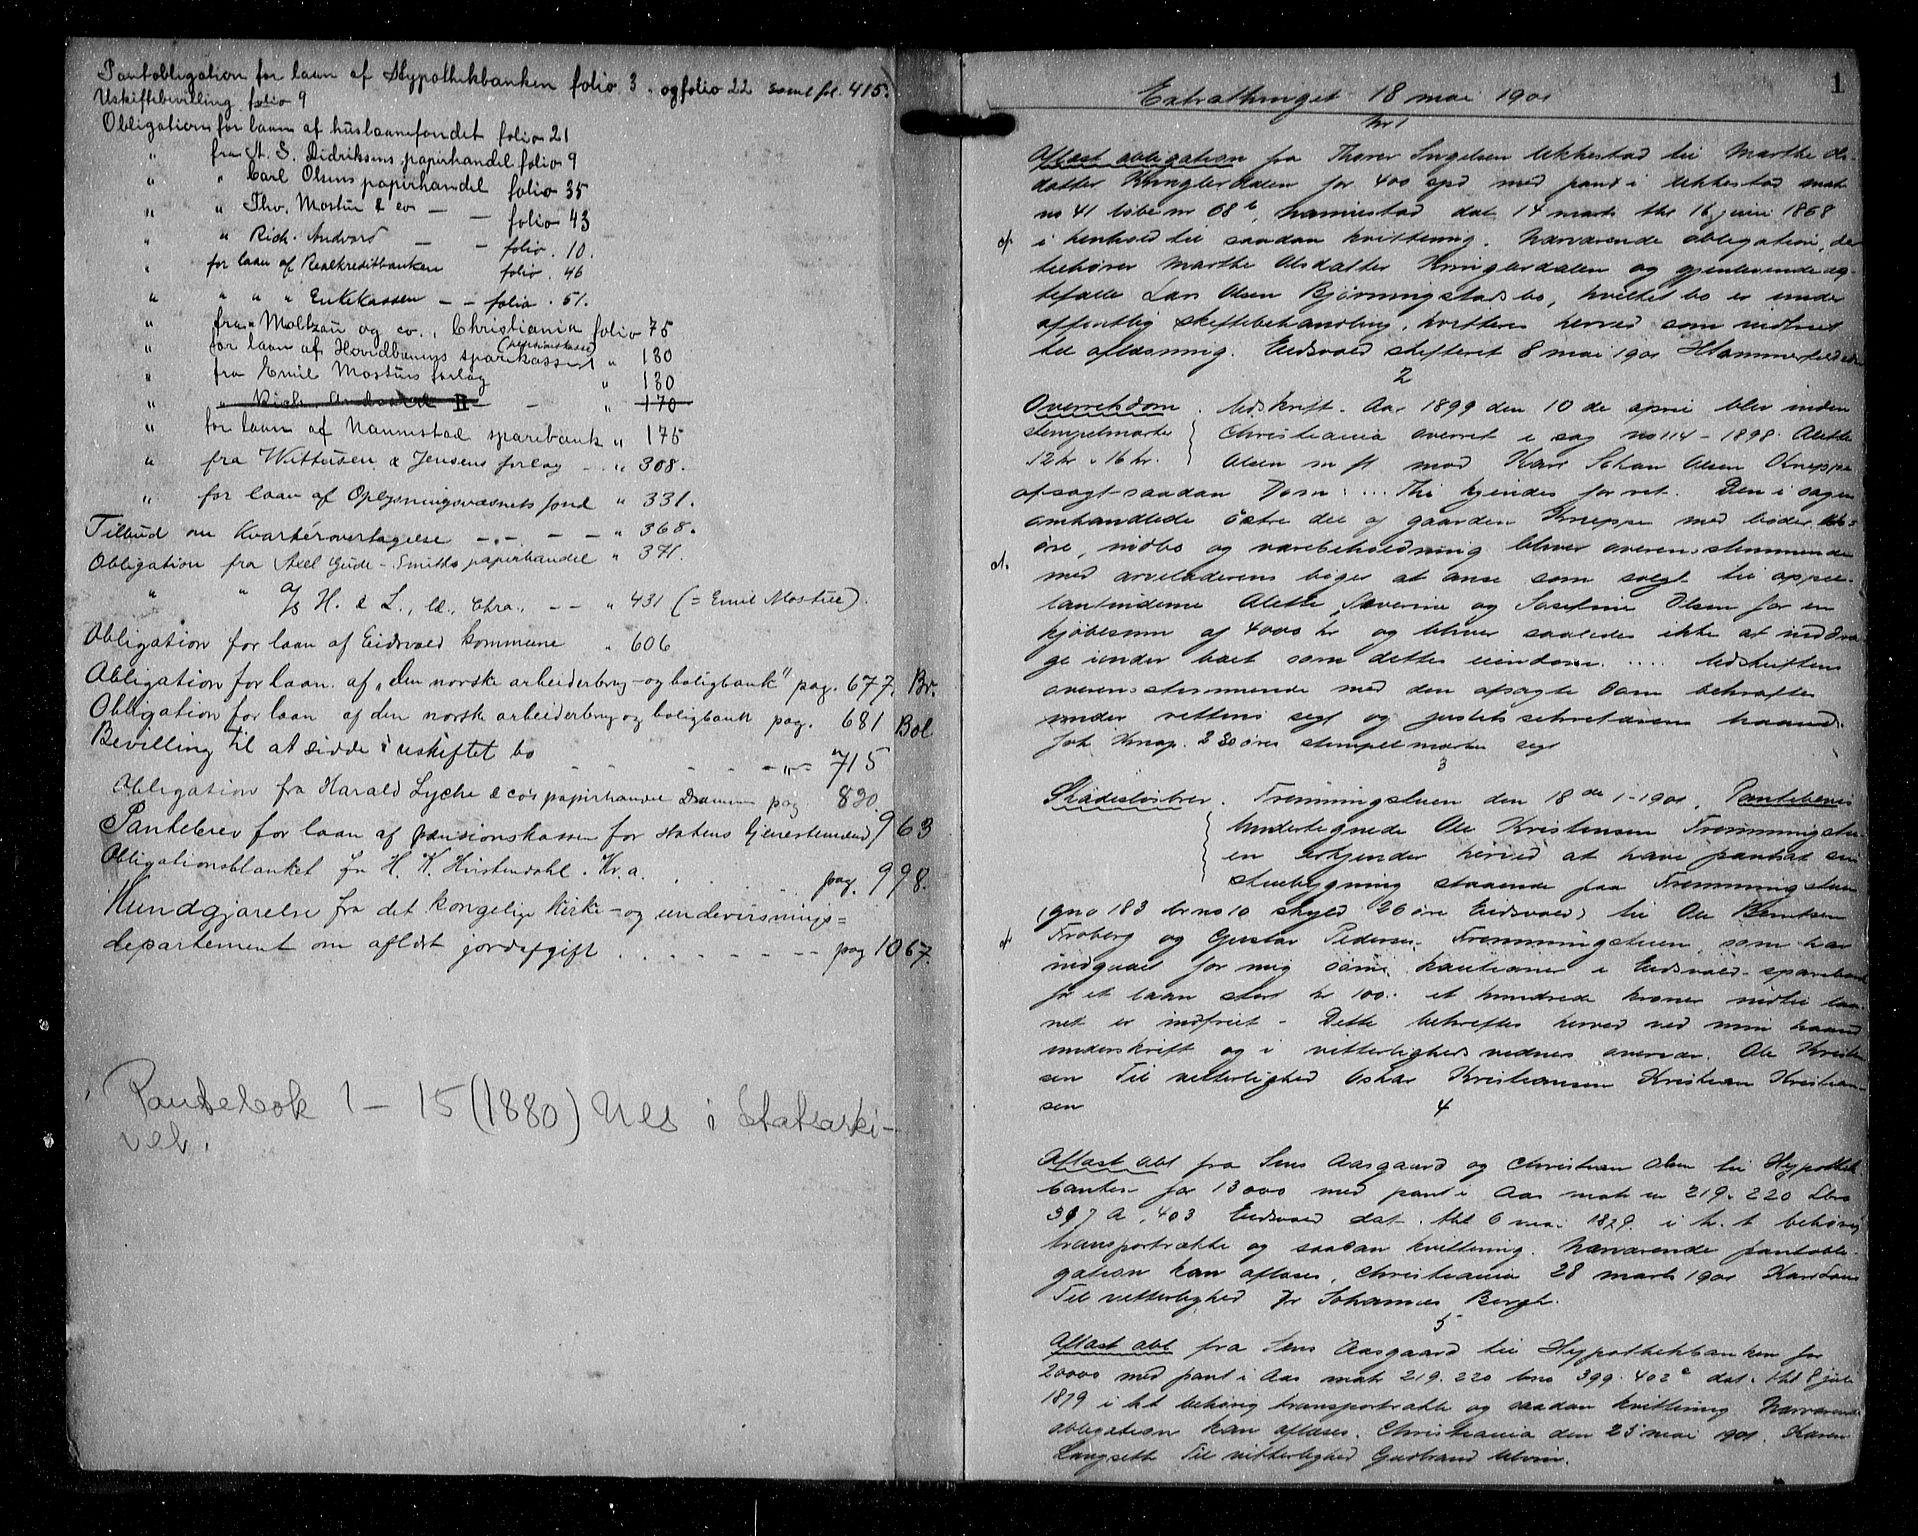 Pantobligation for laan af Hypothekbanken folio 3. og folio 22 samt fol. 415.
Uskiftebevilling folio 9
Obligation for laan af huslaanefondet folio 21
" fra A. S. Didriksens papirhandel folio 9
" " Carl Olsens papirhandel folio 35
" " Thv. Mostue & co — — folio 43
" " Rich. Andvord — — folio. 10.
" for laan af Realkreditbanken folio. 46
" " " " Enkekassen — — folio. 51.
" fra Moltzau og co., Christiania folio 75
" for laan af Hovedbanens sparekasse " 130
(pensionskasse)
" fra Emil Mostues forlag " 130
" " Rich. Andvord II — — " 170
" for laan af Nannestad sparebank " 175
" fra Wittusen & Jensens forlag — " 308.
" for laan af Oplysningsvæsnets fond " 331.
Tilbud om Kvarterovertagelse — — — — " 368.
Obligation fra Axel Gude-Smiths papirhandel " 371.
" " A/S H. & L., Chra., — — " 431 (= Emil Mostue).
Obligation for laan af Eidsvold kommune " 606
Obligation for laan af „den norske arbeiderbrug- og boligbank" pag. 677. Br.
Obligation for laan af den norske arbeiderbrug og boligbank pag. 681 Bol
Bevilling til at sidde i uskiftet bo — — — — " — 715
Obligation fra Harald Lyche & co's papirhandel Drammen pag 820.
Pantebrev for laan af pensionskassen for statens tjenestemænd 963
Obligationsblanket fra H. K. Hirstendahl. Kr.a. . . . . . pag. 998.
Kundgjørelse fra det kongelige Kirke- og undervisnings=
departement om afløst jordafgift . . . . . . . — — pag 1067.
Pantebok 1 – 15 (1880) Nes i Statsarki-
vet.
1
Extrathinget 18 mai 1901
Nr 1
Aflæst obligation fra Thorer Ingelsen Ukkestad til Marthe Ols-
datter Kringlerdalen for 400 spd med pant i Ukkestad matr
no 41 løbenr 68 b, Nannestad dat 14 marts thl 16 juni 1868
i henhold til saadan kvittering. Nærværende obligation, der
tilhører Marthe Olsdatter Kringlerdalen og gjenlevende æg-
tefælle Lars Olsen Bjørningstads bo, hvilket bo er under
offentlig skiftebehandling, kvitteres herved som indfriet
til aflæsning. Eidsvold skifteret 8 mai 1901
2
Overretsdom. Udskrift. Aar 1899 den 10 de april blev inden
stempelmærke Christiania overret i sag no 114 – 1898 Alette
12 kr. 16 kr. Olsen m fl mod Karl Johan Olsen Kneppe
afsagt saadan Dom: ... Thi kjendes for ret. Den i sagen
omhandlede østre del af gaarden Kneppe med
øre, indbo og varebeholdning bliver overensstemmende
med arveladerens bøger at anse som solgt til appel-
lantinderne Alette, Severine og Josefine Olsen for en
kjøbesum af 4000 kr og bliver saaledes ikke at inddra-
ge under boet som dettes eiendom. .... Udskriftens
overensstemmende med den afsagte dom bekræftes
under rettens segl og justitssekretærens haand.
Joh. Knap. 2 30 øres stempelmærker segl
3
Skadesløsbrev. Fremmingstuen den 18 de 1 – 1901. Pantebevis
Undertegnede Ole Kristensen Fremmingstu-
en erkjender herved at have pantsat sin
stuebygning staaende paa Fremmingstuen
(gno 183 brno 10 skyld 26 øre Eidsvold) til Ole Berntsen
Froberg og Gustav Pedersen Fremmingstuen, som har
indgaaet for mig som kautioner i Eidsvold sparebank
for et laan stort kr 100. et hundrede kroner indtil laa-
net er indfriet – Dette bekræftes herved ved min haand
underskrift og i vitterlighedsvidners overvær. Ole Kristen-
sen Til vitterlighed Oskar Kristiansen Kristian Kristian-
sen
4
Aflæst obl fra Jens Aasgaard og Christian Olsen til Hypothek
banken for 13000 med pant i Aas matr nr 219. 220 Lbno
397 A. 403 Eidsvold dat. thl 6 mai 1879. i h. t. behørig
transportrække og saadan kvittering. Nærværende pantobli-
gation kan aflæses, Christiania 28 marts 1901
Til vitterlighed Johannes Bergh.
5
Aflæst obl fra Jens Aasgaard til Hypothekbanken for
20000 med pant i Aas matr 219. 220 lno 399. 402 c dat. thl 8 juli
1879 i h t behørig transportrække og saadan kvittering. Nærværende
obligation kan aflæses. Christiania den 25 mai 1901. Karen
Langseth Til vitterlighed Gudbrand